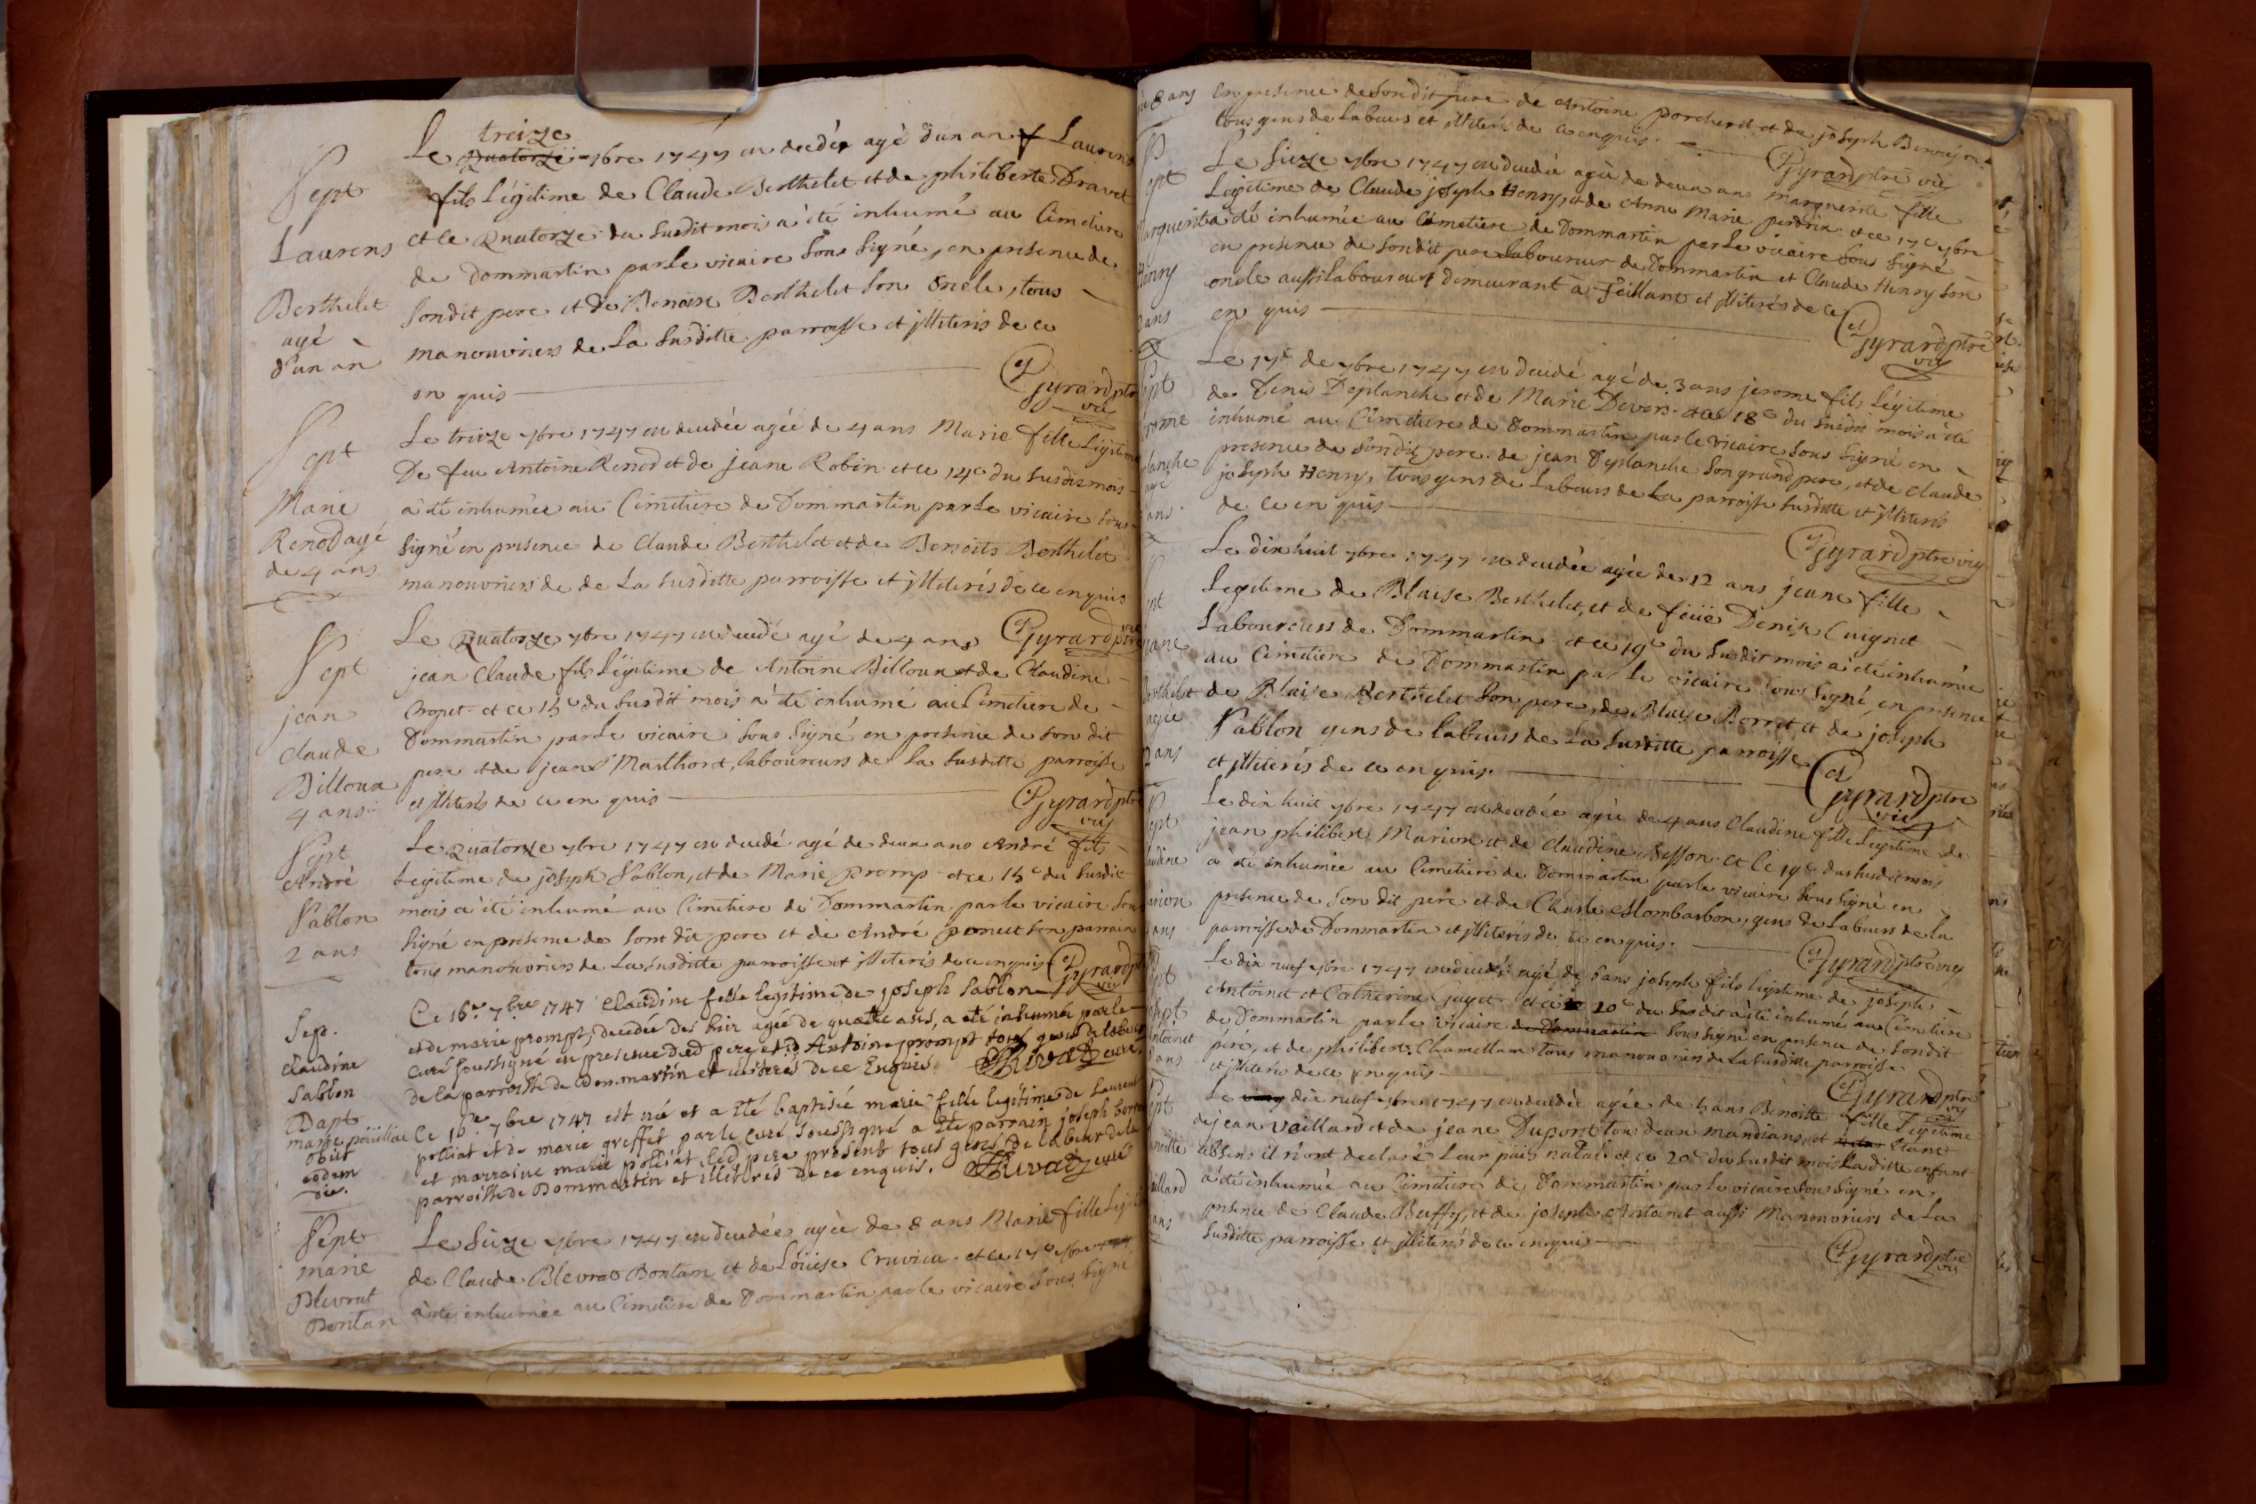 treize
Le Quatorze 7bre 1747 est decédé agé d'un an Laurens
fils Légitime de Claude Berthelet et de philiberte Dravet
et le Quatorze du susdit mois a été inhumé au Cimetiere
de dommartin par le vicaire sous signé, en presence de
sondit pere et de Benoist Berthelet son oncle, tous
manouvriers de la susditte parroisse et illiterés de ce
en quis
Gyrard ptre
vic
Sept
Laurens
Berthelet
agé
d'un an
Le treize 7bre 1747 est decedée agée de 4 ans Marie fille Légitime
De feu Antoine Renod et de jeane Robin et ce 14e du susdit mois
a été inhumée au Cimetiere de Dommartin par le vicaire sous
signé en presence de Claude Berthelet et de Benoits Berthelet
manouvriers de de la susditte parroisse et illiterés de ce enquis
Gyrard ptre
vic
Sept
Marie
Renod agé
de 4 ans
Le Quatorze 7bre 1747 est decedé agé de 4 ans
jean Claude fils Légitime de Antoine Billoux et de Claudine
et ce 15e du susdit mois a été inhumé au Cimetiere de
Dommartin par le vicaire sous signé en presence de son dit
pere et de jean laboureurs de la susditte parroisse
et illiterés de ce en quis
Gyrard ptre
vic
Sept
jean
Claude
Billoux
4 ans
Le quatorze 7bre 1747 est decedé agé de deux ans André fils
Legitime de joseph Sablon, et de Marie promp et ce 15e du susdit
mois a été inhumé au Cimetiere de Dommartin par le vicaire sous
signé en presence de sont dit pere et de André son parrain
tous manouvriers de la susditte parroisse et illiterés de ce enquis
Gyrard ptre
vic
Sept
André
Sablon
2 ans
Ce 16e 7bre 1747 Claudine fille legitime de joseph Sablon
et de marie prompt, decedée dès hier agée de quattre ans, a eté inhumée par le
curé soussigné en presence dud pere et d'Antoine prompt tous gens de labeur
de la parroisse de dommartin et illiterés de ce Enquis.
curé
Sep.
claudine
Sablon
Ce 16e 7bre 1747 est née et a eté baptisée marie fille legitime de Laurent
polliat et de marie greffet par le curé soussigné a été parrain joseph
et marraine marie polliat led pere présent tous gens de labeur de la
parroisse de Dommartin et illiterés de ce enquis.
curé
Bapt
marie
obiit
eodem
die.
Le Sieze 7bre 1747 est decedée agée de 8 ans Marie fille Légit
de Claude Blevrat Bontan et de Loüise et ce 17e 7bre
a été inhumée au Cimetiere de Dommartin par le vicaire sous signé
Sept
marie
Blevrat
Bontan
8 ans
En presence de sondit pere de Antoine porcheret et de joseph
tous gens de labeurs et illiterés de ce enquis.
Gyrard ptre vic
Le Sieze 7bre 1747 est decedée agée de deux ans marguerite fille
Légitime de Claude joseph Henry, et de Anne Marie perdrix et ce 17e 7bre
a été inhumée au Cimetiere de Dommartin par le vicaire sous signé
en presence de sondit pere laboureur de Dommartin et Claude Henry son
oncle aussi laboureur demeurant à Feillant et illiterés de ce
en quis
Gyrard ptre
vic
Le 17e de 7bre 1747 est decedé agé de 3 ans jerome fils Légitime
de Denis Deplanche et de Marie Devers et ce 18e du susdit mois a été
inhumé au Cimetiere de Dommartin par le vicaire sous signé en
presence de sondit pere de jean Deplanche son grand pere, et de Claude
joseph Henry, tous gens de labeurs de la parroisse susditte et illiterés
de ce en quis
Gyrard ptre vic
Le dix huit 7bre 1747 est decedée agée de 12 ans jeane fille
Legitime de Blaise Berthelet, et de feüe Denise Cuignet
Laboureurs de Dommartin et ce 19e du susdit mois a été inhumée
au Cimetiere de Dommartin par le vicaire sous signé, en presence
de Blaise Berthelet son pere, de Blaise et de joseph
Sablon gens de labeurs de la susditte parroisse
et illiterés de ce en quis.
Gyrard ptre
vic
Le dix huit 7bre 1747 est decedée agée de 4 ans Claudine fille Legitime de
jean philibert Marion et de Claudine et le 19e du susdit mois
a été inhumée au Cimetiere de Dommartin par le vicaire sous signé en
presence de son dit pere et de Charle Mombarbon, gens de labeurs de la
parroisse de Dommartin et illiterés de ce en quis.
Gyrard ptre vic
Le dix neuf 7bre 1747 est decedé agé de 6 ans joseph fils legitime de joseph
Antoinet et Catherine Guyet et ce 20e du susdit a été inhumé au Cimetiere
de Dommartin par le vicaire de Dommartin sous signé en presence de sondit
pere, et de philibert Chamellan tous manouvriers de la susditte parroisse
et illiterés de ce enquis
Gyrard ptre
vic
Le dix neuf 7bre 1747 est decedée agée de 5 ans Benoitte fille Legitime
de jean Vaillard et de jeane Duport tous deux mandians, et étant
absens il n'ont declaré leur païs natal et ce 20e du susdit mois la ditte enfant
a été inhumée au Cimetiere de Dommartin par le vicaire sous signé en
presence de Claude Buffy, et de joseph Antoinet aussi Manouvriers de la
susditte parroisse et illiterés de ce enquis
Gyrard ptre
vic